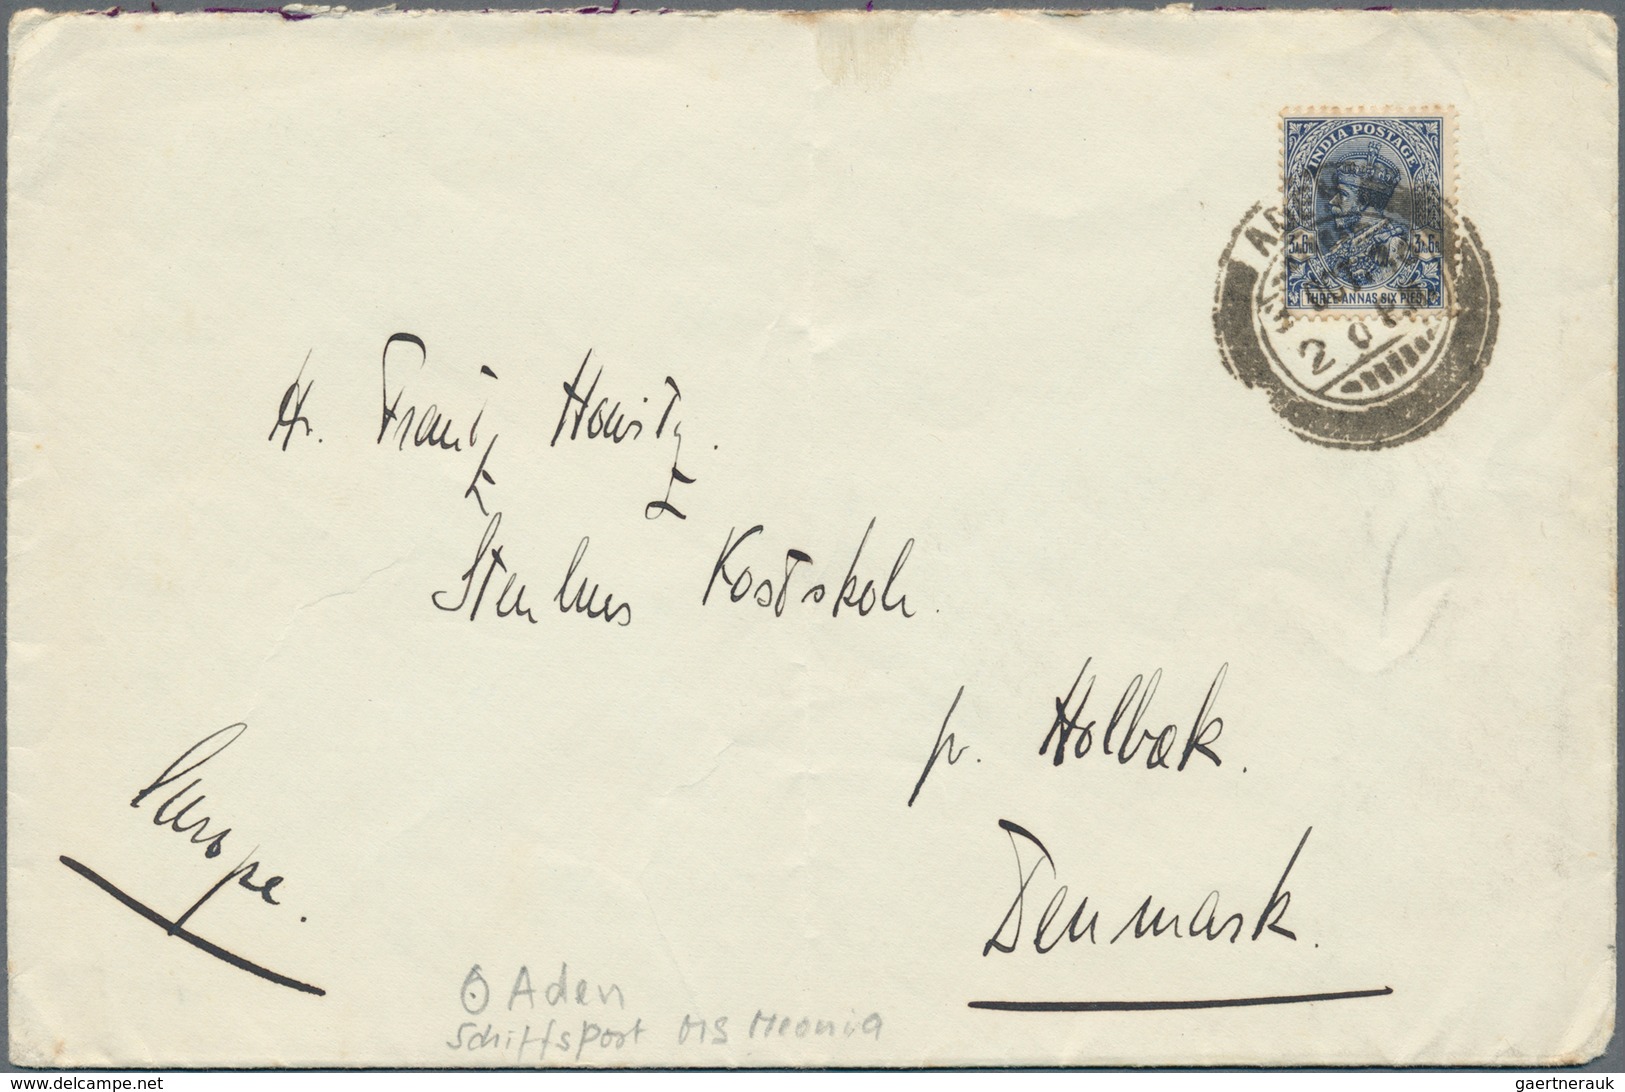 INDIA POSTAGE
3A.6P. 3A.6P.
THREE ANNAS SIX PIES
2 0 P.M
Hr. Frantz Howitz.
Stenhus Kostskole.
pr. Holbæk.
Denmark.
Europe.
Aden
Schiffspost MS Meonia
www.delcampe.net
gaertnerauk